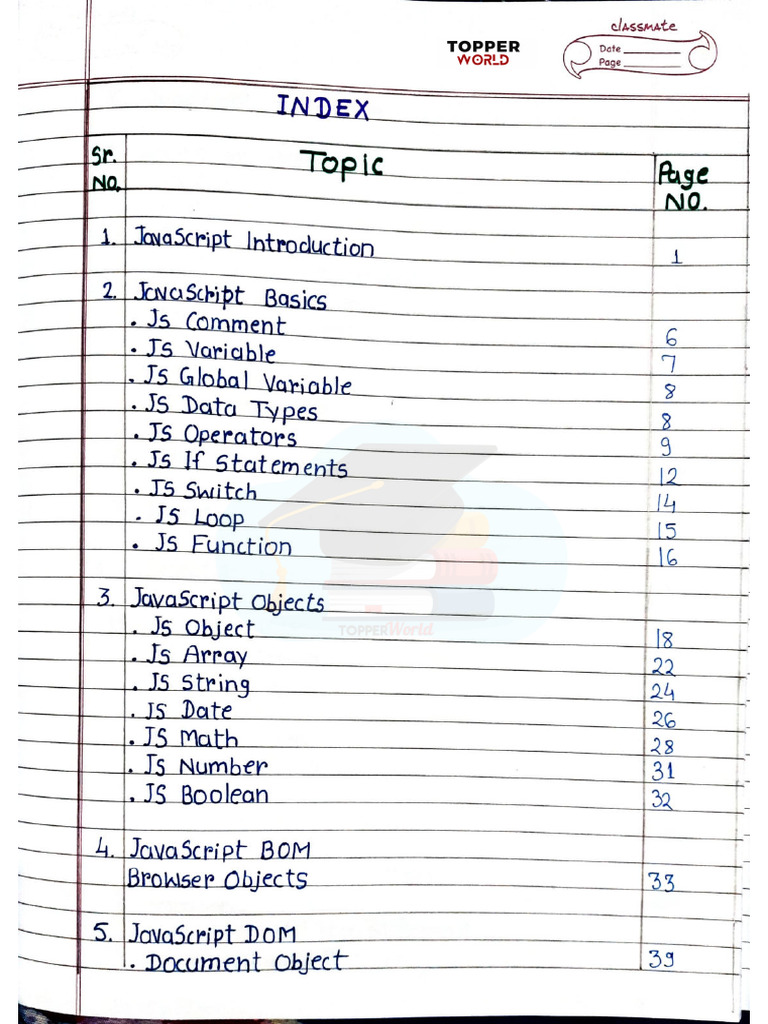 classmate
TOPPER
WORLD
Date
Page
INDEX
Sr. No. Topic Page No.
1. JavaScript Introduction 1
2. JavaScript Basics
. Js Comment 6
. Js Variable 7
. Js Global Variable 8
. JS Data Types 8
. JS Operators 9
. Js If Statements 12
. JS Switch 14
. JS Loop 15
. JS Function 16
3. JavaScript Objects
. Js Object 18
. Js Array 22
. JS String 24
. JS Date 26
. JS Math 28
. Js Number 31
. JS Boolean 32
4. JavaScript BOM
Browser Objects 33
5. JavaScript DOM
. Document Object 39
TOPPER World